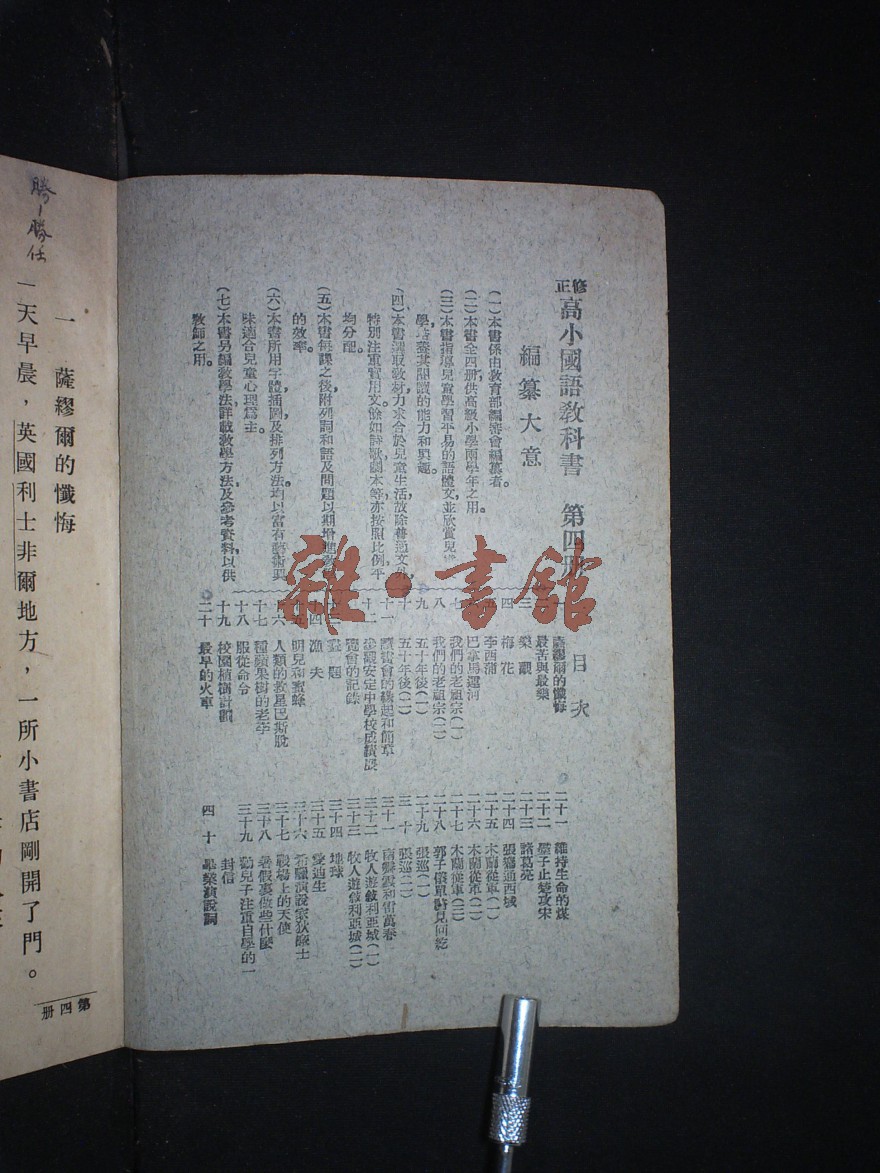 修正 高小國語教科書 第四冊
編纂大意
(一)本書係由教育部編審會編纂者。
(二)本書全四冊,供高級小學兩學年之用。
(三)本書指導兒童學習平易的語體文,並欣賞兒
學,培養其閱讀的能力和興趣。
(四)本書選取教材,力求合於兒童生活,故除普通文外,
特別注重實用文,餘如詩歌劇本等,亦按照比例平
均分配。
(五)本書每課之後,附列詞和語及問題,以期增進教
的效率。
(六)本書所用字體插圖及排列方法,均以富有藝術興
味適合兒童心理為主。
(七)本書另編教學法,詳載教學方法及參考資料,以供
教師之用。
目次
薩繆爾的懺悔
最苦與最樂
三 樂觀
四 梅花
李西蒲
巴拿馬運河
七 我們的老祖宗(一)
八 我們的老祖宗(二)
九 五十年後(一)
十 五十年後(二)
十一 讀書會的緣起和簡章
十二 參觀安定中學校成績展
覽會的記錄
十四 漁夫
十五 明兒和蜜蜂
十六 人類的救星巴斯脫
十七 種蘋果樹的老李
十八 服從命令
十九 校園植樹計劃
二十 最早的火車
二十一 維持生命的煤
二十二 墨子止楚攻宋
二十三 諸葛亮
二十四 張騫通西域
二十五 木蘭從軍(一)
二十六 木蘭從軍(二)
二十七 木蘭從軍(三)
二十八 郭子儀單騎見回紇
二十九 張巡(一)
三十 張巡(二)
三十一 南霽雲和雷萬春
三十二 牧人遊敘利亞城(一)
三十三 牧人遊敘利亞城(二)
三十四 地球
三十五 愛迪生
三十六 希臘演說家狄摩士
三十七 戰場上的天使
三十八 暑假裏做些什麼
三十九 勸兒子注重自學的一
封信
四十 畢業演說詞
勝-勝任
一 薩繆爾的懺悔
一天早晨,英國利士非爾地方,一所小書店剛開了門。
第四冊
雜·書館